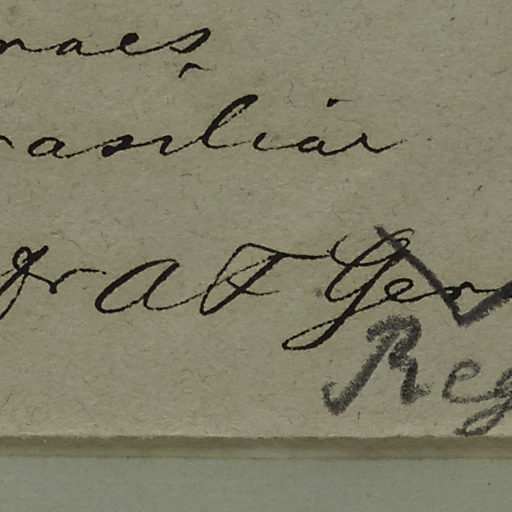 naes
rasiliár
fr A F Ger
Reg